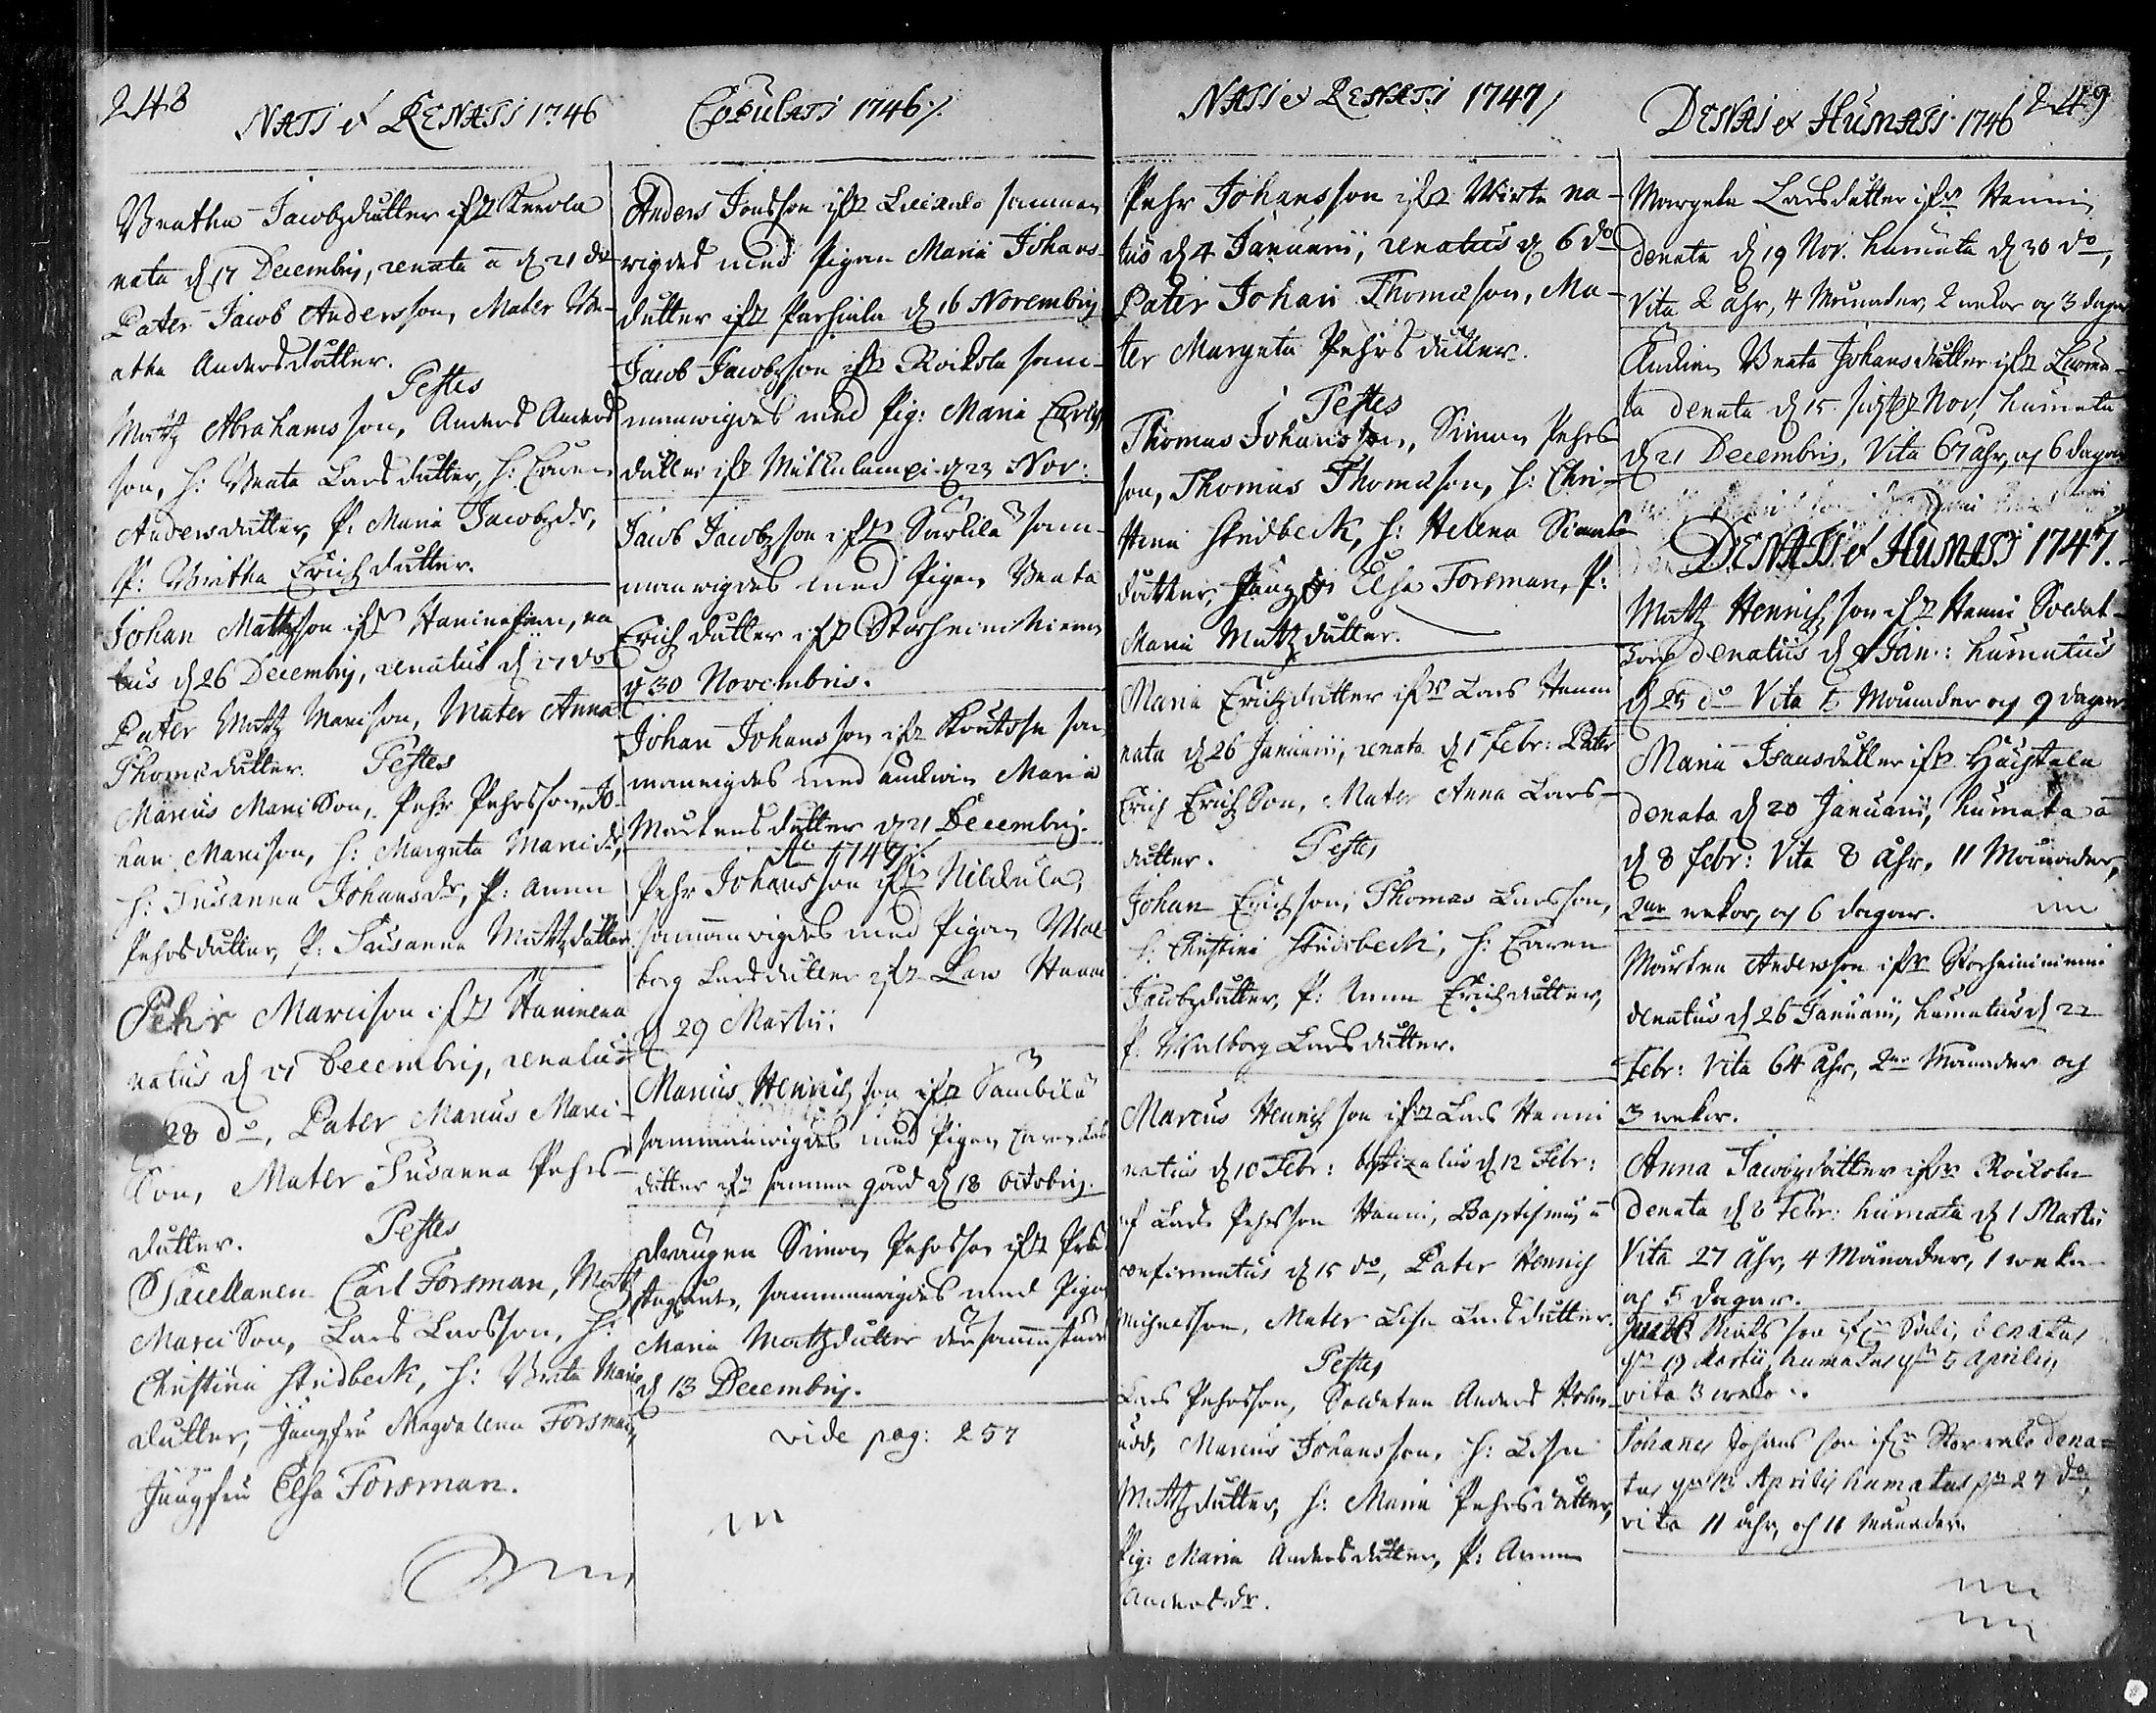 248
NATI et RENATI 1746
Beatha Jacobzdutter ifr Kerola
nata d 17 Decembris, renata d 21 do
Pater Jacob Andersson, Mater Be-
atha Andersdutter.
Testes
Matz Abrahamsson, Anders Anders
son, h: Beata Larsdutter, h: Caren
Andersdutter, P. Maria Jacobzdr,
P: Britha Erichdutter.
Johan Mattzson ifr na
tus d 26 Decembrij, renatus d 27 do
Pater Mattz Marcison, Mater Anna
Thomsdutter. Testes
Marcus Marcisson, Pehr Pehrsson, Jo-
han Marcison, h: Margeta Marcidr,
h: Susanna Johansdr, P: Anna
Pehrsdutter, P: Susanna Mattzdutter.
Pehr Marcison ifr Haninena
natus d Decembrij, renatus
28 do, Pater Marcus Marci-
son, Mater Susanna Pehrs-
dutter. Testes
Sacellanen Carl Forsman, Mattz
Marcison, Lars Larsson, h:
Christina Stridbeck, h: Brita Marci
dutter, Jungfru Magdalena Forsman,
Jungfru Elsa Forsman.
COPULATI 1746
Anders Jonsson ifr samman
wigdes med Pigan Maria Johans-
dutter ifr Parhiala d 16 Novembrij
Jacob Jacobzson ifr Roikola sam-
manwigdes med Pig: Maria Carls
dutter ifr d 23 Nov:
Jacob Jacobzson ifr Sarkila sam-
manwigdes med Pigan Beata
Erichdutter ifr Storheinniemi
d 30 Novembris.
Johan Johansson ifr sam
manwigdes med Enkian Maria
Mårtensdutter d 21 Decembrij.
Ao 1747
Pehr Johansson ifr
sammanwigdes med Pigan Wal
borg Larsdutter ifr Lars Hanni
d 29 Martii.
Marcus Hennichson ifr
sammanwigdes med Pigan Caren Lars
dutter ifr samma gård d 18 octobrij.
Drängen Simon Pehrsson ifr Pre-
stegården, sammanwigdes med Pigan
Maria Mattzdutter
d 13 Decembrij.
vide pag: 257
NATI et RENATI 1747
Pehr Johansson ifr Wirta na-
tus d 4 Januarii, renatus d 6 do
Pater Johan Thomasson, Ma-
ter Margeta Pehrsdutter.
Testes
Thomas Johansson, Simon Pehrs-
son, Thomas Thomasson, h: Chri-
stina Stridbeck, h: Helena Simons
dutter, Jungfr: Elsa Forsman, P:
Maria Mattzdutter.
Maria Erichdutter ifr Lars Hanni
nata d 26 Januarii, renata d 1 febr: Pater
Erich Erichson, Mater Anna Lars-
dutter. Testes
Johan Erichson, Thomas Larsson,
h: Christina Stridbeck, h: Caren
Jacobzdutter, P: Anna Erichdutter,
P: Walborg Larsdutter.
Marcus Hennichson ifr Lars Hanni
natus d 10 Febr: baptizatus d 12 Febr:
af Lars Pehrsson Hanni, Baptismus
confirmatus d 15 do, Pater Hennich
Michelsson, Mater Lisa Larsdutter.
Testes
Lars Pehrsson, Soldaten Anders
Marcus Johansson, h: Lisa
Mattzdutter, h: Maria Pehrsdutter,
Pig: Maria Andersdutter, P: Anna
Andersdr.
249
DENATI et HUMATI 1746
Margeta Larsdutter ifr Hanni
denata d 19 Nov. humata d 30 do,
Vita 2 åhr, 4 Månader, 2 wekor och 3 dagar
Enkian Beata Johansdutter ifr
denata d 15 Nov, humata
d 21 Decembris, Vita 67 åhr, och 6 dagar
DENATI et HUMATI 1747.
Mattz Hennichson ifr Hanni Soldat-
torp denatus d Jan: humatus
d 25 do Vita Månader och 9 dagar
Maria Isaacsdutter ifr
denata d 20 Januarii, humata
d 8 febr: Vita 8 åhr, 11 Månader,
2ne wekor, och 6 dagar.
Mårten Andersson ifr Storheininiemi
denatus d 26 Januarii, humatus d 22
febr: Vita 64 åhr, 2ne Månader och
3 wekor.
Anna Jacobzdutter ifr Roikola
denata d 8 Febr: humata d 1 Martii
Vita 27 åhr, 4 Månader, 1 weka
och 5 dagar.
ifrån denatus
d 19 Martii, humatus d 5 Aprilis,
vita 3 wekor.
Johannes Johansson ifrån dena-
tus d 13 Aprilis humatus d 27 do,
vita 11 åhr, och 11 månader.